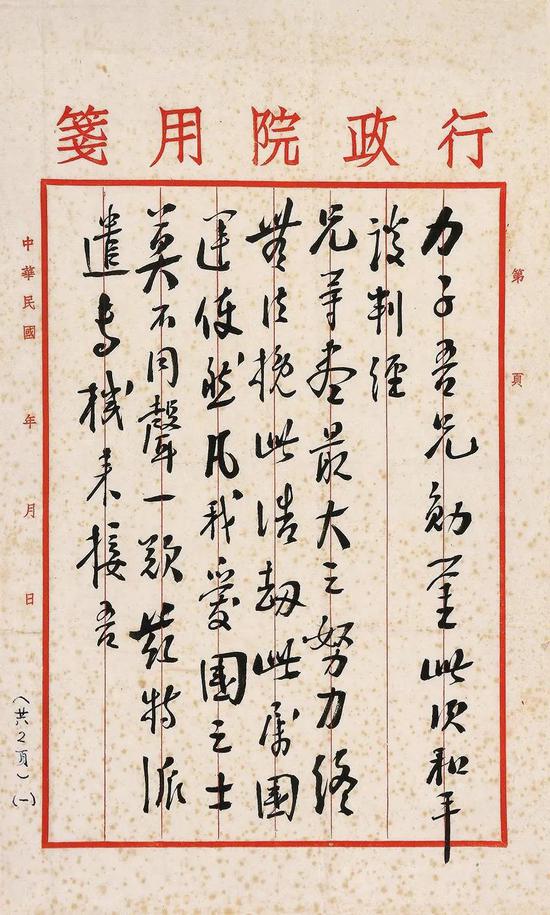 行政院用箋
第 頁
力子吾兄勛鑒此次和平
談判經
兄等盡最大之努力終
無法挽此浩劫此屬國
運使然凡我愛國之士
莫不同聲一歎茲特派
遣專機來接吾
中華民國 年 月 日
(共2頁)(一)